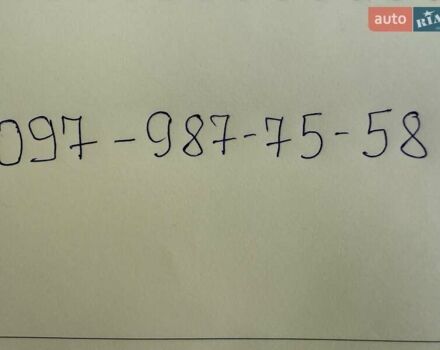 auto RIA
097-987-75-58